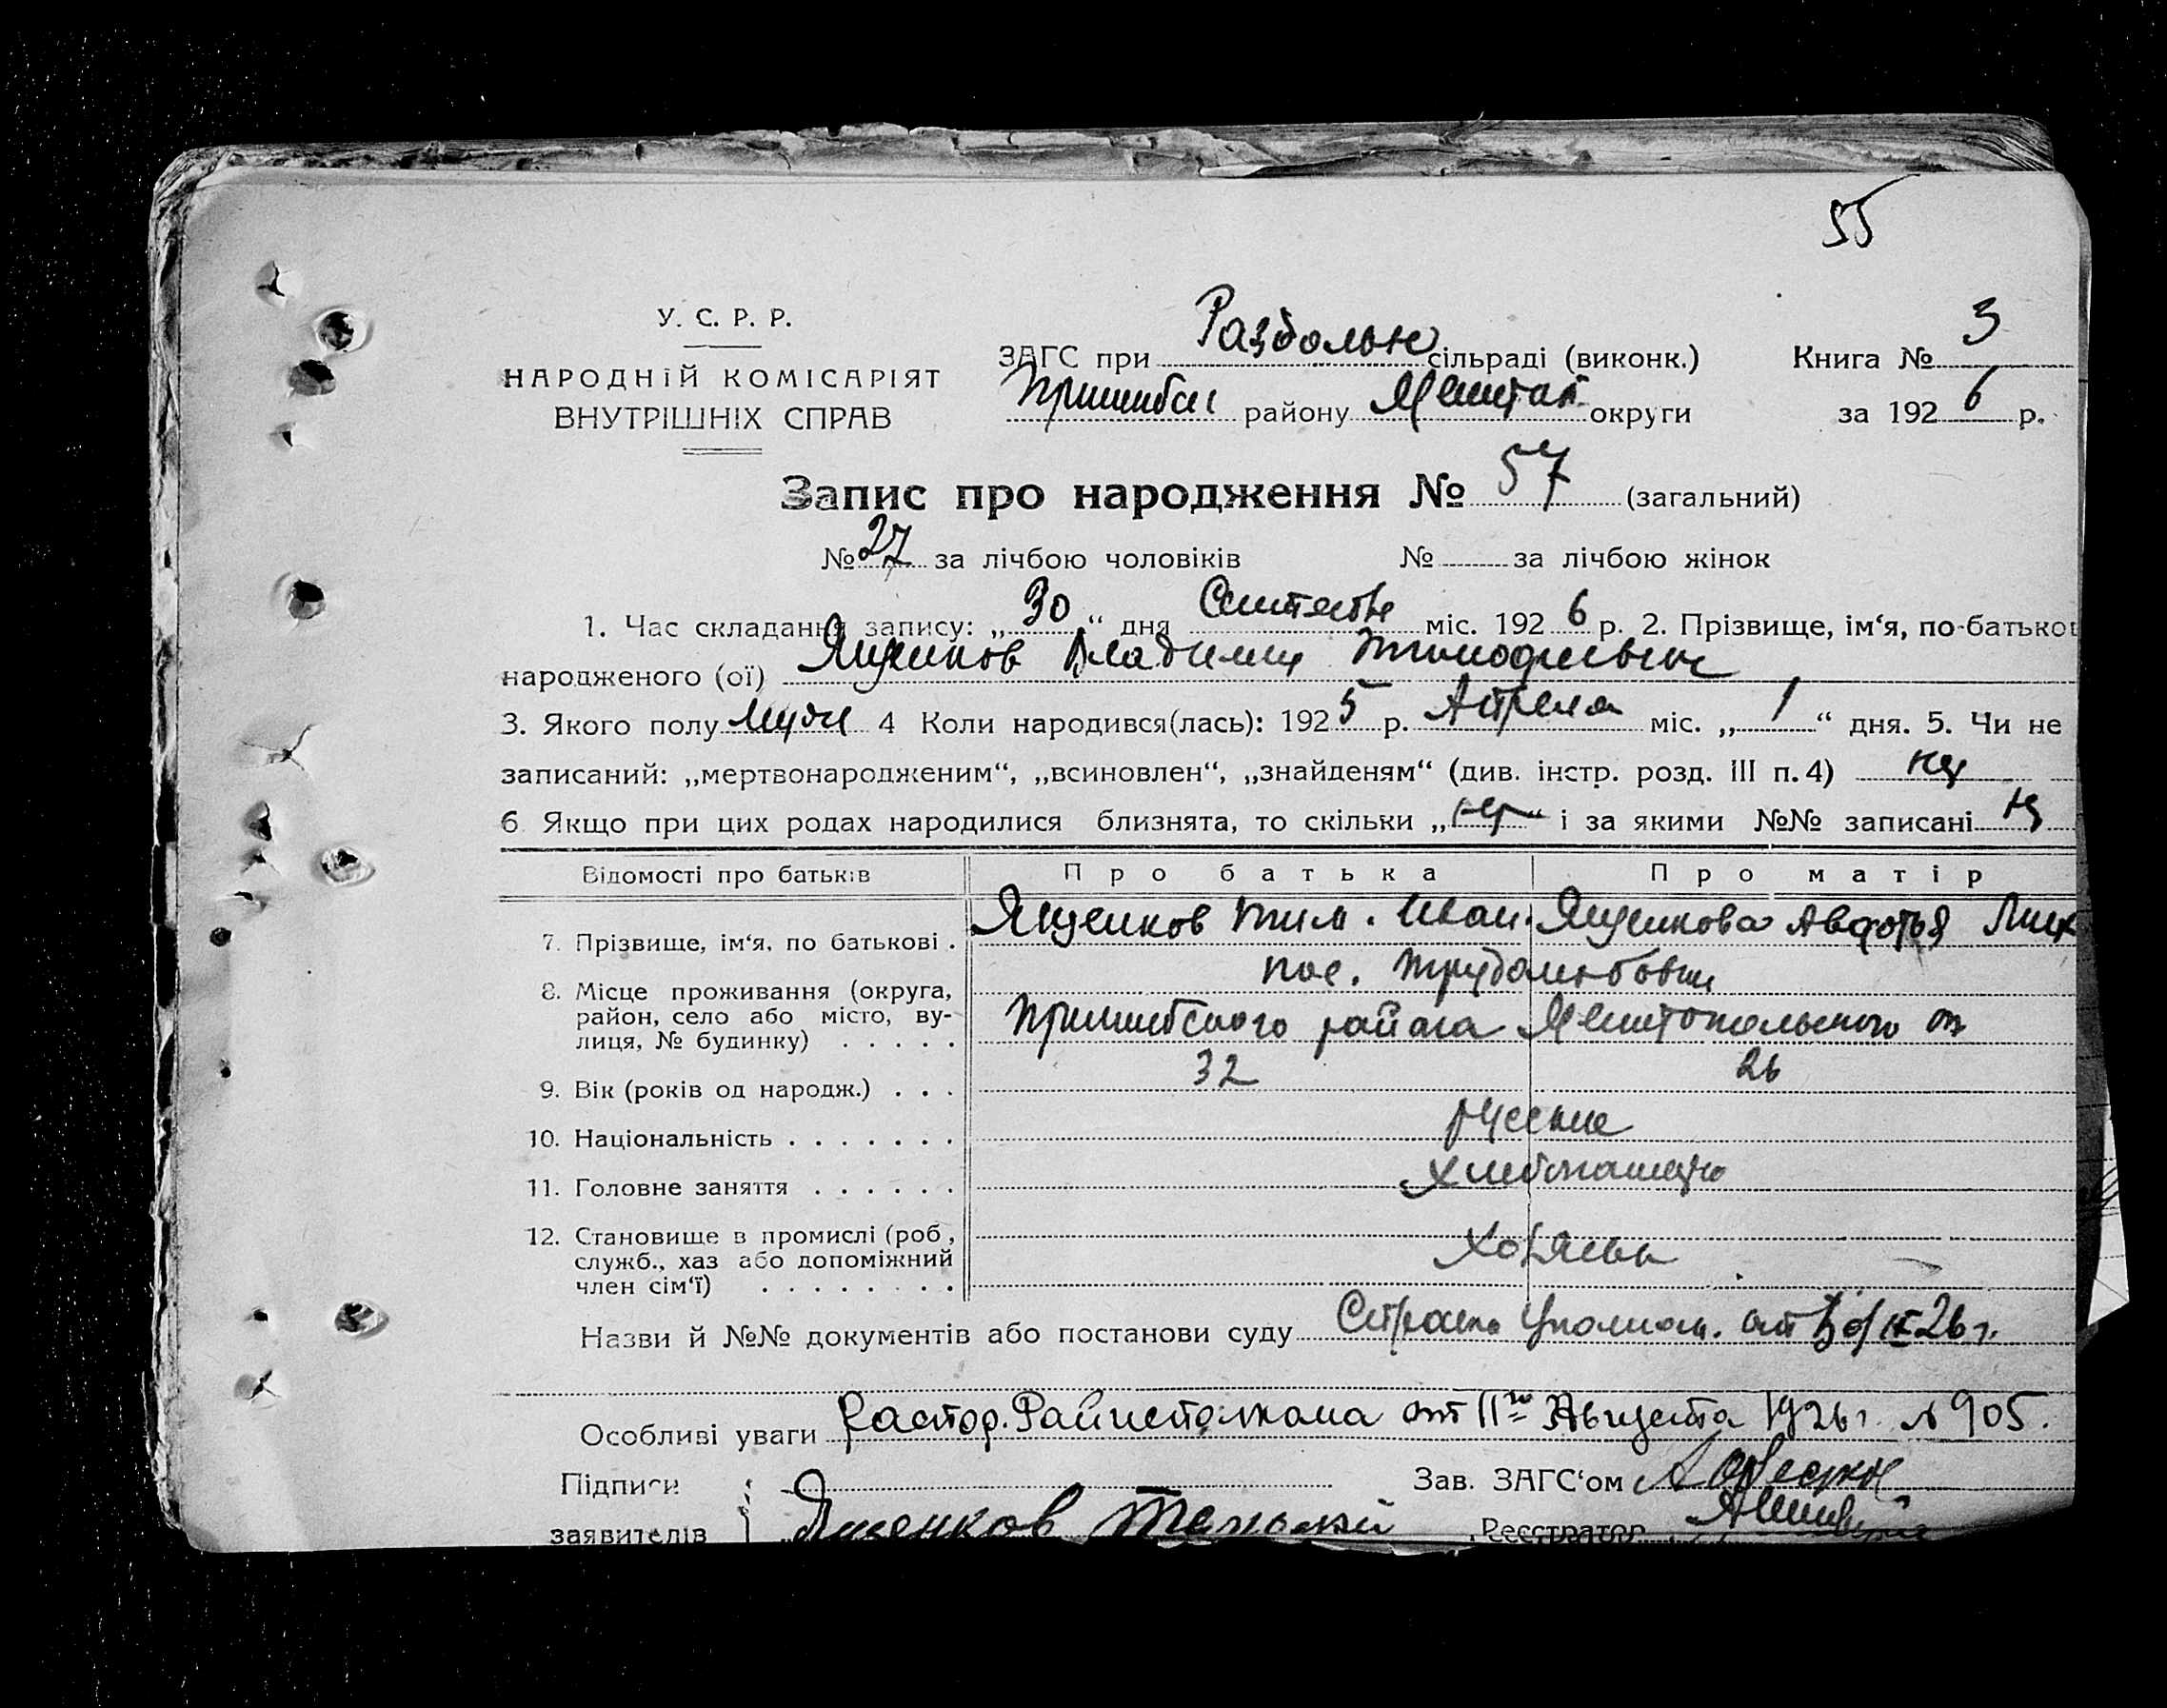 55
У. С. Р. Р.
НАРОДНІЙ КОМІСАРІЯТ
ВНУТРІШНІХ СПРАВ
ЗАГС при Раздольн сільраді (виконк.) Книга № 3
Пришибск району Мелитоп. округи за 1926 р.
Запис про народження № 57 (загальний)
№ 27 за лічбою чоловіків № за лічбою жінок
1. Час складання запису: „30“ дня міс. 1926 р. 2. Прізвище, ім‘я, по-батькові
народженого (ої) Ященков Владимир Тимофеевич
3. Якого полу 4 Коли народився(лась): 1925 р. Апреля міс. „1“ дня. 5. Чи не
записаний: „мертвонародженим“, „всиновлен“, „знайденям“ (див. інстр. розд. III п. 4)
6 Якщо при цих родах народилися близнята, то скільки „ “ і за якими №№ записані
Відомості про батьків Про батька Про матір
7. Прізвище, ім‘я, по батькові . Ященков Тим. Иван. Ященкова Авдотья
пос. Трудолюбовки
8. Місце проживання (округа,
район, село або місто, ву-
лиця, № будинку) . . . . . Пришибского района Мелитопольского
9. Вік (років од народж.) . . . 32 26
10. Національність . . . . . . . русские
11. Головне заняття . . . . . . хлебопашцы
12. Становище в промислі (роб,
служб., хаз або допоміжний
член сім‘ї) . . . . . . . .
Назви й №№ документів або постанови суду
Особливі уваги Распор. Райисполкома от 11го Августа 1926 г. № 905.
Підписи Зав. ЗАГС‘ом
заявителів Ященков Реєстратор